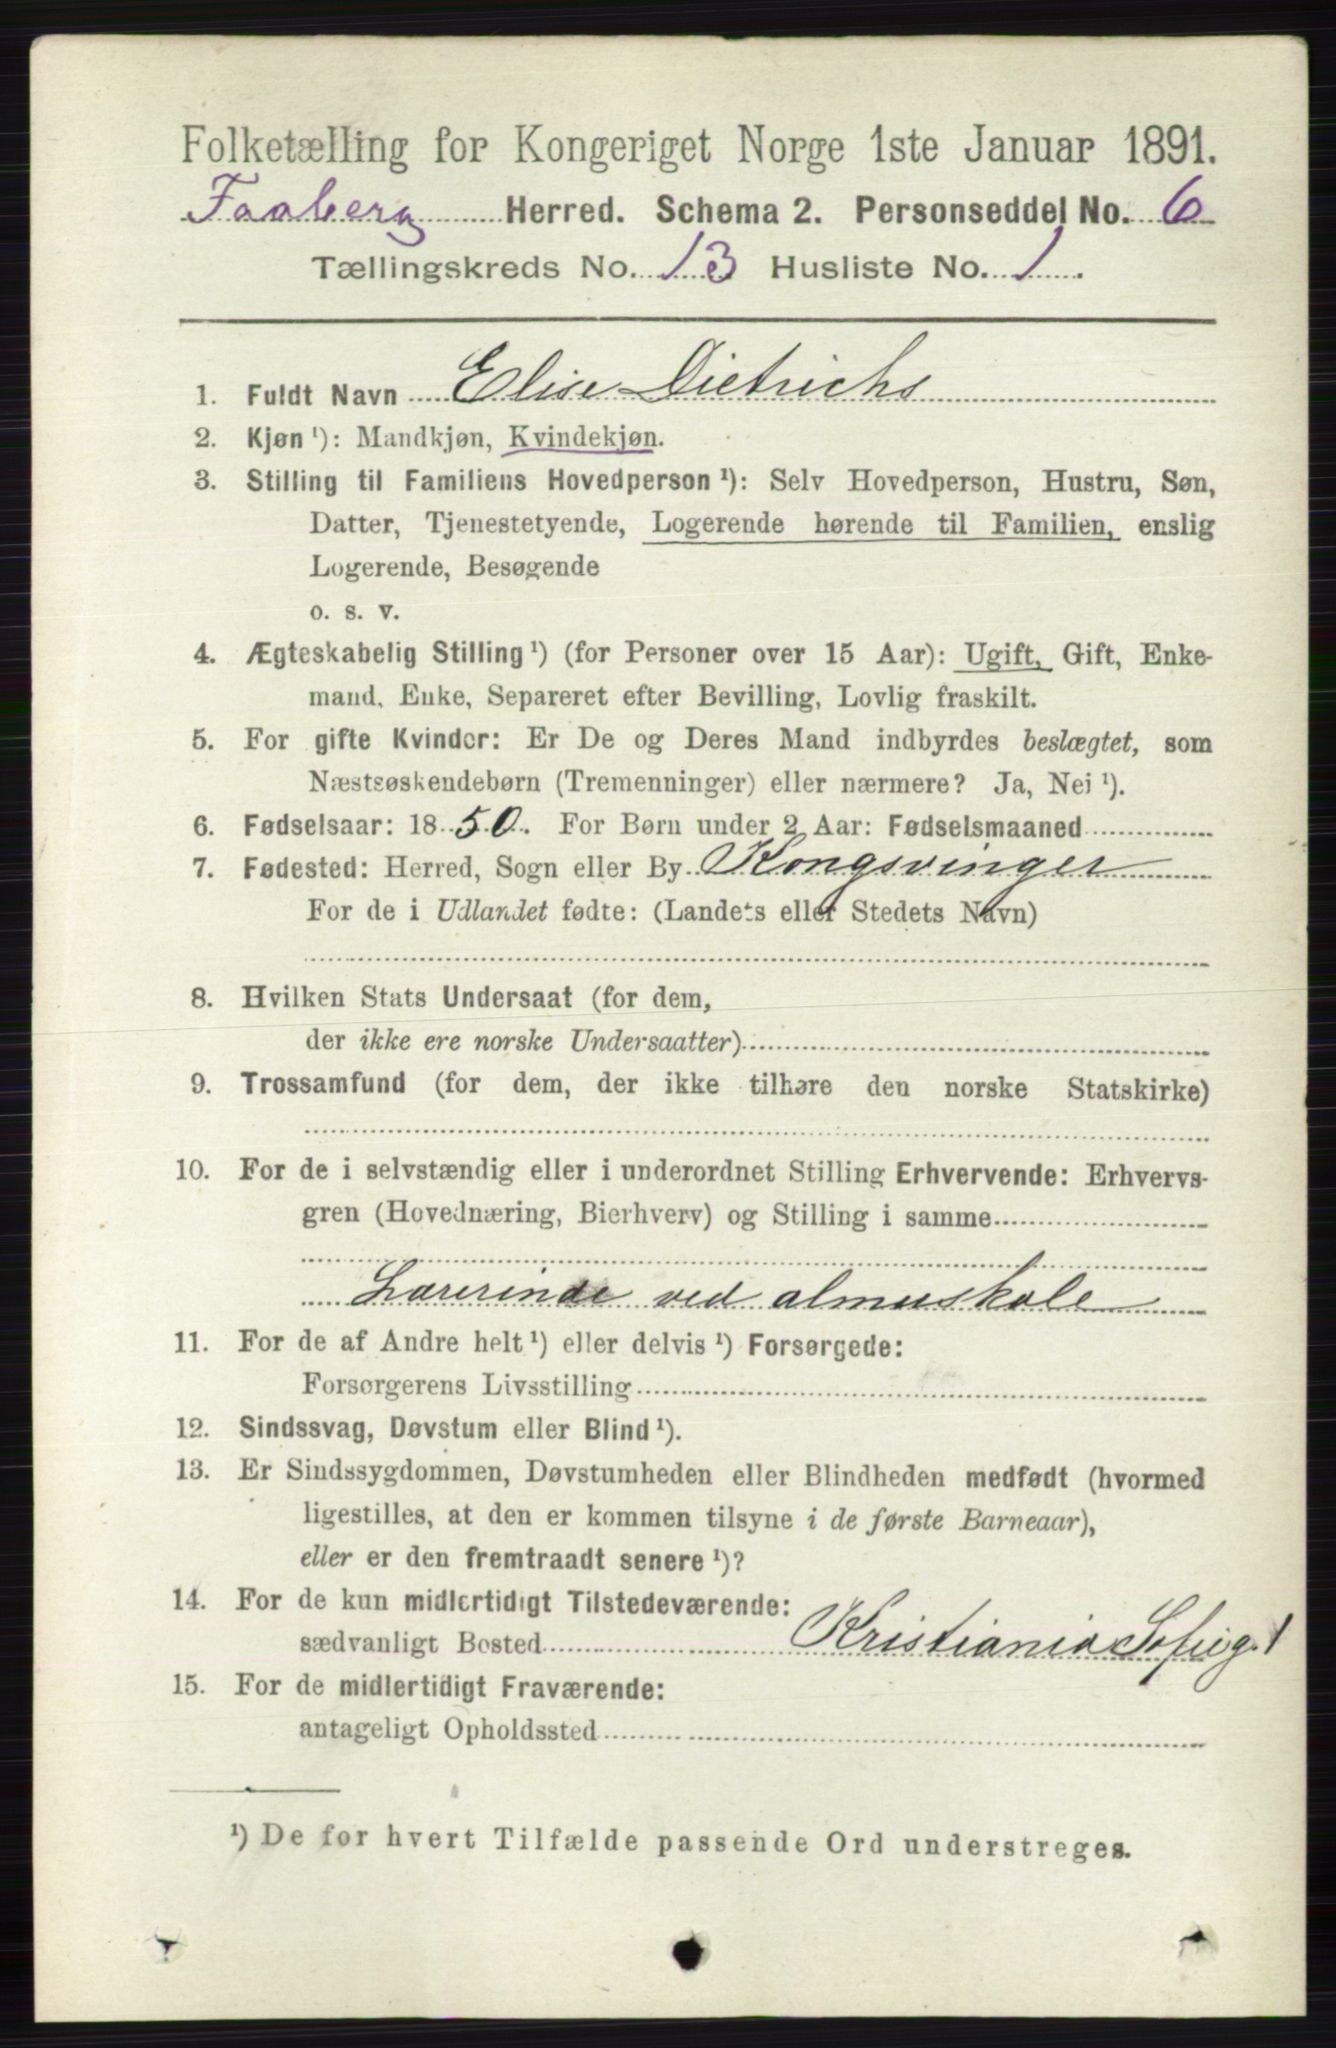 Folketælling for Kongeriget Norge 1ste Januar 1891.
Faaberg Herred. Schema 2. Personseddel No. 6
Tællingskreds No. 13 Husliste No. 1.
1. Fuldt Navn Elise Dietrichs
2. Kjøn ¹): Mandkjøn, Kvindekjøn.
3. Stilling til Familiens Hovedperson ¹): Selv Hovedperson, Hustru, Søn,
Datter, Tjenestetyende, Logerende hørende til Familien, enslig
Logerende, Besøgende
o. s. v.
4. Ægteskabelig Stilling ¹) (for Personer over 15 Aar): Ugift, Gift, Enke-
mand, Enke, Separeret efter Bevilling, Lovlig fraskilt.
5. For gifte Kvinder: Er De og Deres Mand indbyrdes beslægtet, som
Næstsøskendebørn (Tremenninger) eller nærmere? Ja, Nei ¹).
6. Fødselsaar: 1850. For Børn under 2 Aar: Fødselsmaaned
7. Fødested: Herred, Sogn eller By Kongsvinger
For de i Udlandet fødte: (Landets eller Stedets Navn)
8. Hvilken Stats Undersaat (for dem,
der ikke ere norske Undersaatter)
9. Trossamfund (for dem, der ikke tilhøre den norske Statskirke)
10. For de i selvstændig eller i underordnet Stilling Erhvervende: Erhvervs-
gren (Hovednæring, Bierhverv) og Stilling i samme
Lærerinde ved almuskole
11. For de af Andre helt ¹) eller delvis ¹) Forsørgede:
Forsørgerens Livsstilling
12. Sindssvag, Døvstum eller Blind ¹).
13. Er Sindssygdommen, Døvstumheden eller Blindheden medfødt (hvormed
ligestilles, at den er kommen tilsyne i de første Barneaar),
eller er den fremtraadt senere ¹)?
14. For de kun midlertidigt Tilstedeværende:
sædvanligt Bosted Kristiania Sofieg. 1
15. For de midlertidigt Fraværende:
antageligt Opholdssted
¹) De for hvert Tilfælde passende Ord understreges.